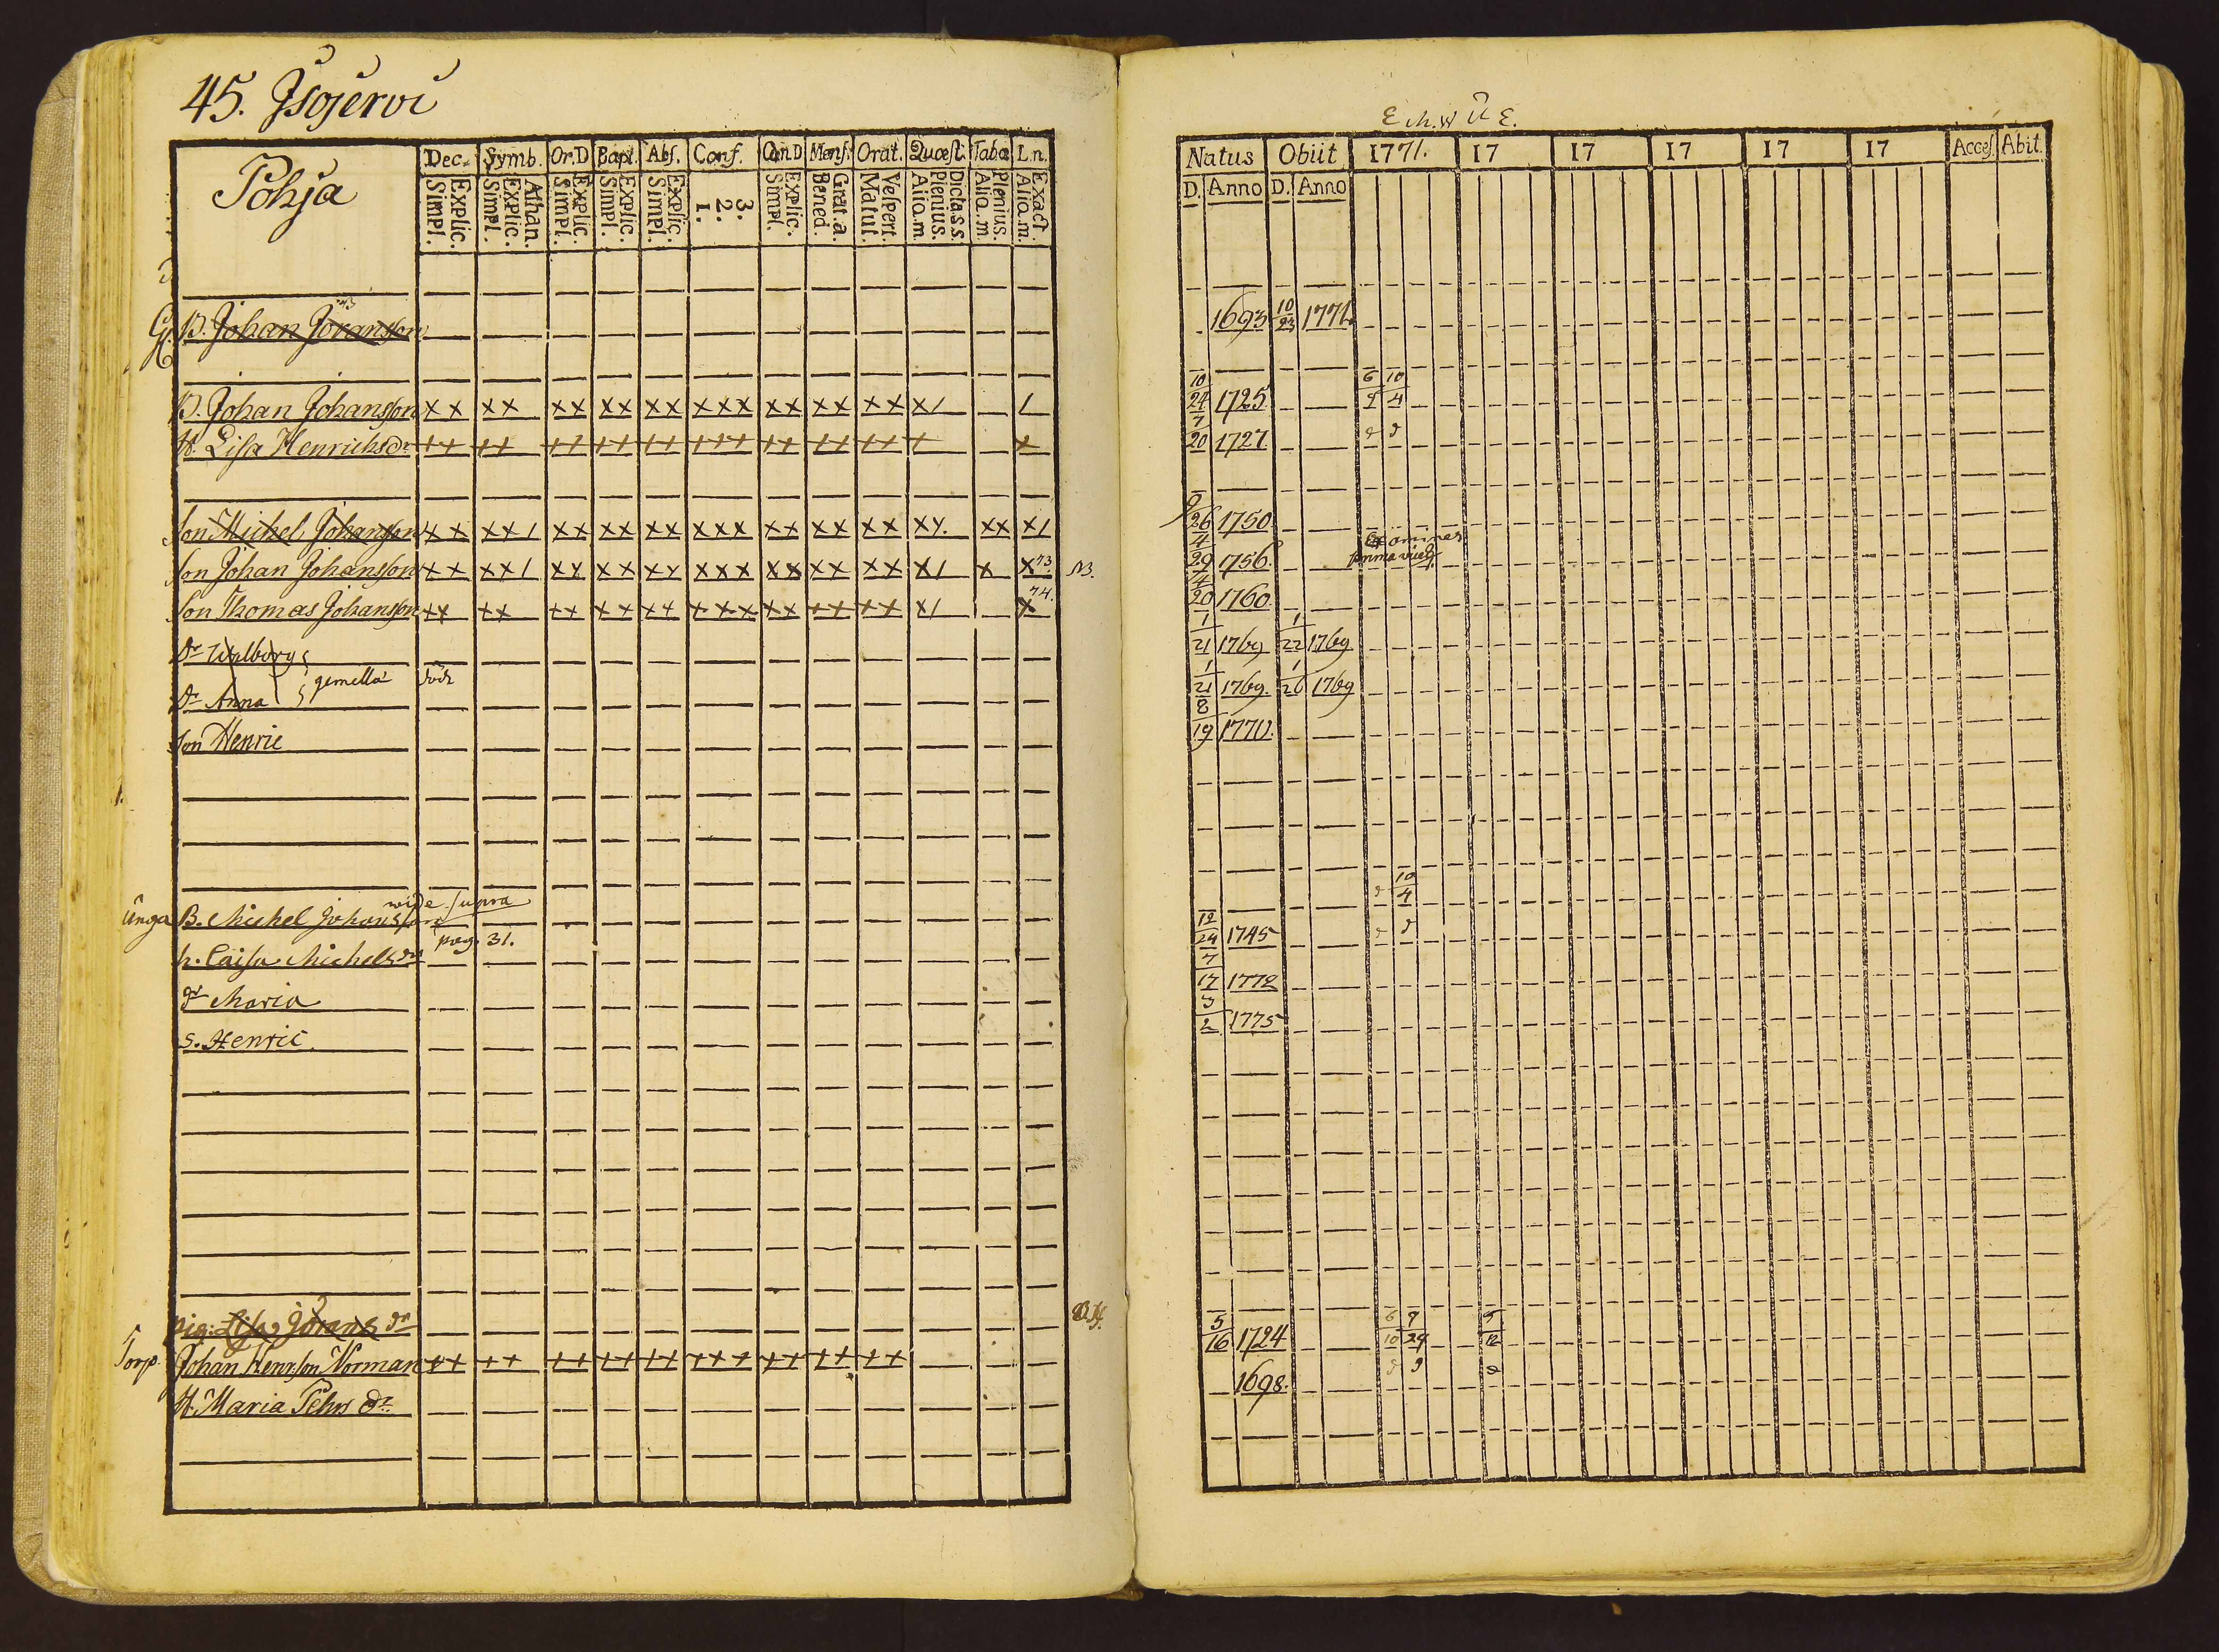 45. Isojerwi
Pohja
Dec. Symb. Or.D Bapt. Abs. Conf. Cæn.D Mens. Orat. Quæst. Taba L.n.
Simpl. Explic. Simpl. Explic. Athan. Simpl. Explic. Simpl. Explic. Simpl. Explic. 1. 2. 3. Simpl. Explic. Bened. Grat.a. Matut. Vespert. Alia.m. Plenius. Dicta.s.s. Alia.m. Plenius. Alia.m. Exact.
B. Johan Johansson
B. Johan Johansson xx xx xx xx xx xxx xx xx xx x/ /
H. Lisa Henrichsdr ++ ++ ++ ++ ++ +++ ++ ++ ++ + x
Son Michel Johansson xx xx/ xx xx xx xxx xx xx xx xy. xx x/
Son Johan Johansson xx xx/ xx xx xx xxx xx xx xx x/ x x 73
Son Thomas Johansson xx xx xx xx xx xxx xx xx xx x/ x 74.
Dr Walborg
gemella
Dr Anna
Son Henric
wide supra
Unga B. Michel Johansson
pag. 31.
h. Caisa Michelsdr
dr Maria
S. Henric
pig: Lisa Johans dr
Torp. Johan Henrsson Norman ++ ++ ++ ++ ++ +++ ++ ++ ++
H. Maria Pehrs dr
Natus Obiit 1771. 17 17 17 17 17 Acces. Abit.
D. Anno D. Anno
1693 10/23 1771
10/24 1725 6/9 10/4
7/20 1727
9/26 1750
4/29 1756
4/20 1760
1/21 1769 1/22 1769
1/21 1769. 1/26 1769
8/19 1770.
10/4
12/24 1745
7/17 1772
3/2 1775
5/16 1724 6/10 9/29 5/12
1698.